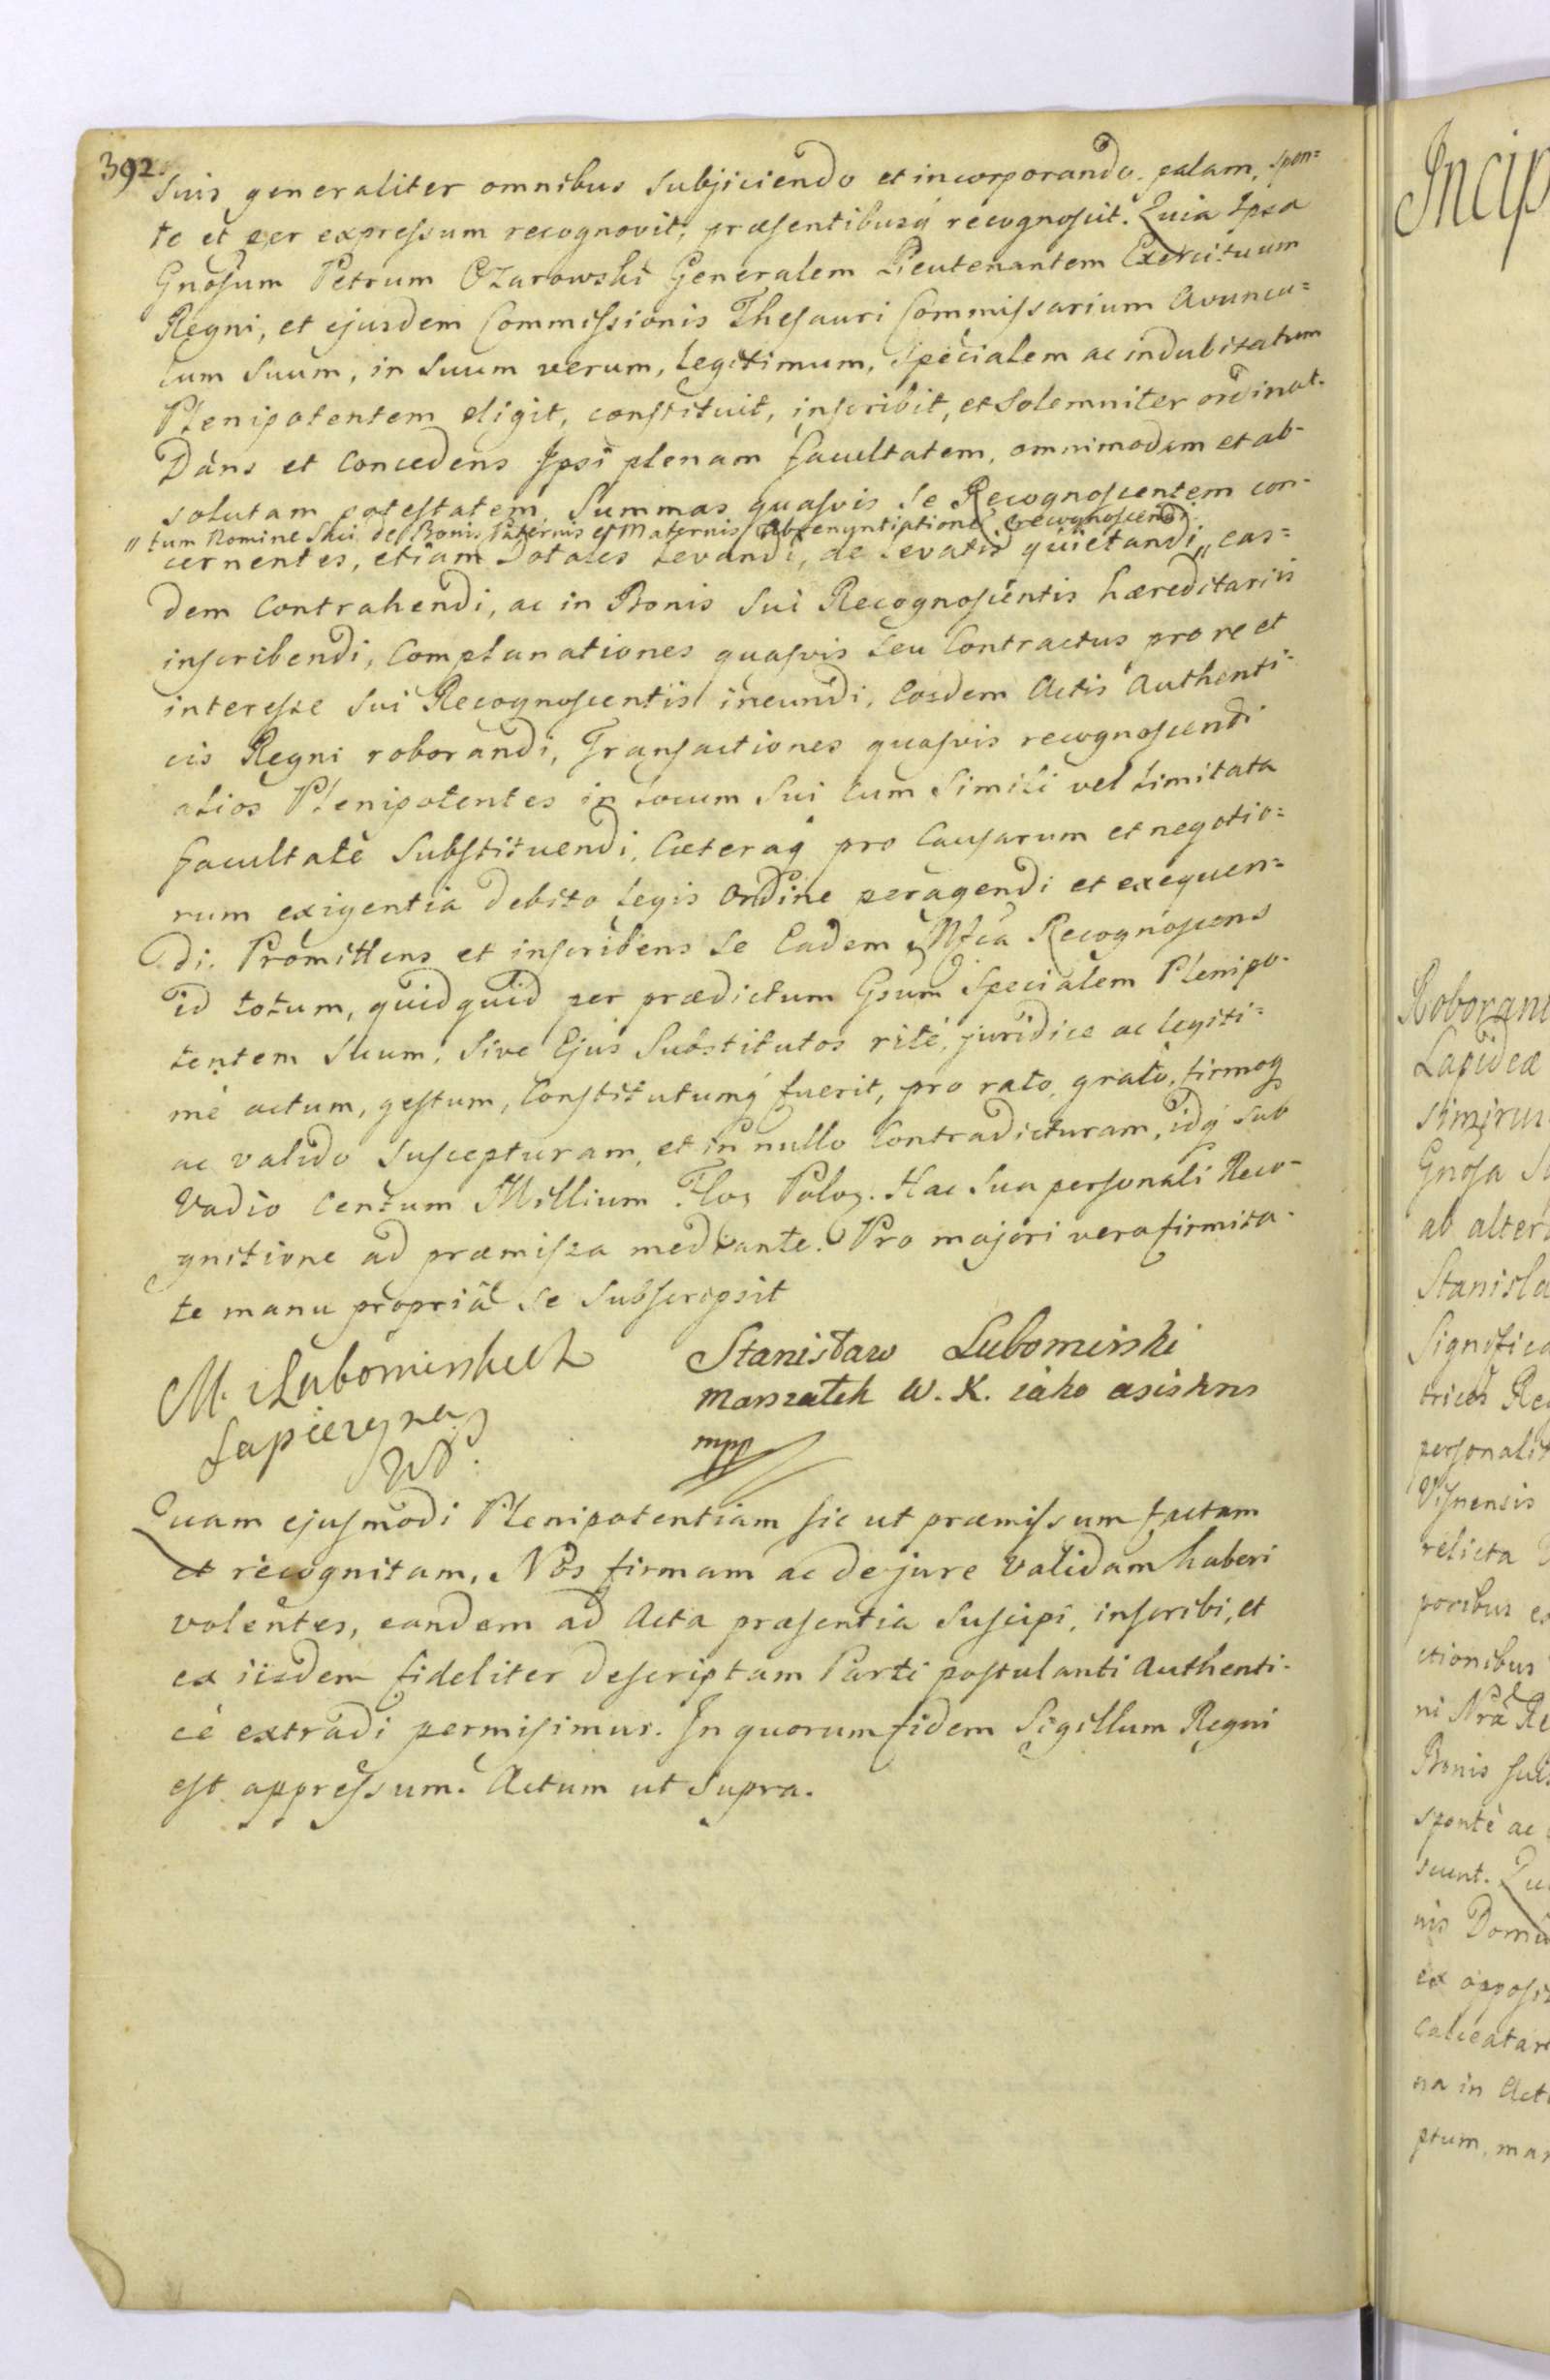 392.
suis generaliter omnibus subjiciendo et incorporando. palam, spon=
te et per expressum recognovit, præsentibusq́ recognoscit. Quia Ipsa
Gnosum Petrum Ożarowski Generalem Lieutenantem Exercituum
Regni, et ejusdem Commissionis Thesauri Commissarium Avuncu=
lum Suum, in Suum verum, legitimum, specialem ac indubitatum
Plenipotentem eligit, constituit, inscribit, et solemniter ordinat.
Dans et Concedens Ipsi plenam facultatem, omnimodam et ab-
solutam potestatem, Summas quasvis se Recognoscentem con-
„ tum Nomine Sui de Bonis Paternis et Maternis Abrenuntiatione recognoscendi
cernentes, etiam Dotales levandi, de levatis quietandi „ eas=
dem Contrahendi, ac in Bonis Sui Recognoscentis hæreditariis
inscribendi, Complanationes quasvis seu Contractus pro re et
interesse Sui Recognoscentis ineundi, Eosdem Actis Authenti-
cis Regni roborandi, Transactiones quasvis recognoscendi
alios Plenipotentes in locum Sui cum Simili vel limitata
facultate Substituendi, Cæteraq́ pro Causarum et negotio=
rum exigentia debito legis Ordine peragendi et exequen=
di. Promittens et inscribens se Eadem Mfca Recognoscens
id totum, quidquid per prædictum Gsum Specialem Plenipo-
tentem Suum, Sive Ejus Substitutos rite, juridice ac legiti=
mè actum, gestum, Constitutumq́ fuerit, pro rato, grato, firmoq́
ac valido Suscepturam, et in nullo Contradicturam, idq́ sub
Vadio Centum Millium Flor Polor. Hac Sua personali Reco-
gnitione ad præmissa mediante. Pro majori vero firmita-
te manu propriâ se Subscripsit
M. Lubomirskich Stanisław Lubomirski
Sapieżyna marszałek W. K. iako asistens
mpp
Quam ejusmodi Plenipotentiam sic ut præmissum factam
et recognitam, Nos firmam ac de jure validam haberi
volentes, eandem ad Acta præsentia suscipi, inscribi, et
ex iisdem fideliter descriptam Parti postulanti Authenti-
cè extradi permisimus. In quorum fidem Sigillum Regni
est appressum. Actum ut supra.
Incip
Roboran
Lapideæ
Gnosa
ab alter
Stanisla
Significa
trices Re
personalit
Visnensis
relicta
poribus
ctionibus
ni Nrâ Re
Bonis suis
spontè ac
scunt. Qu
nis
ex opposi
calceatar
na in Act
ptum, ma